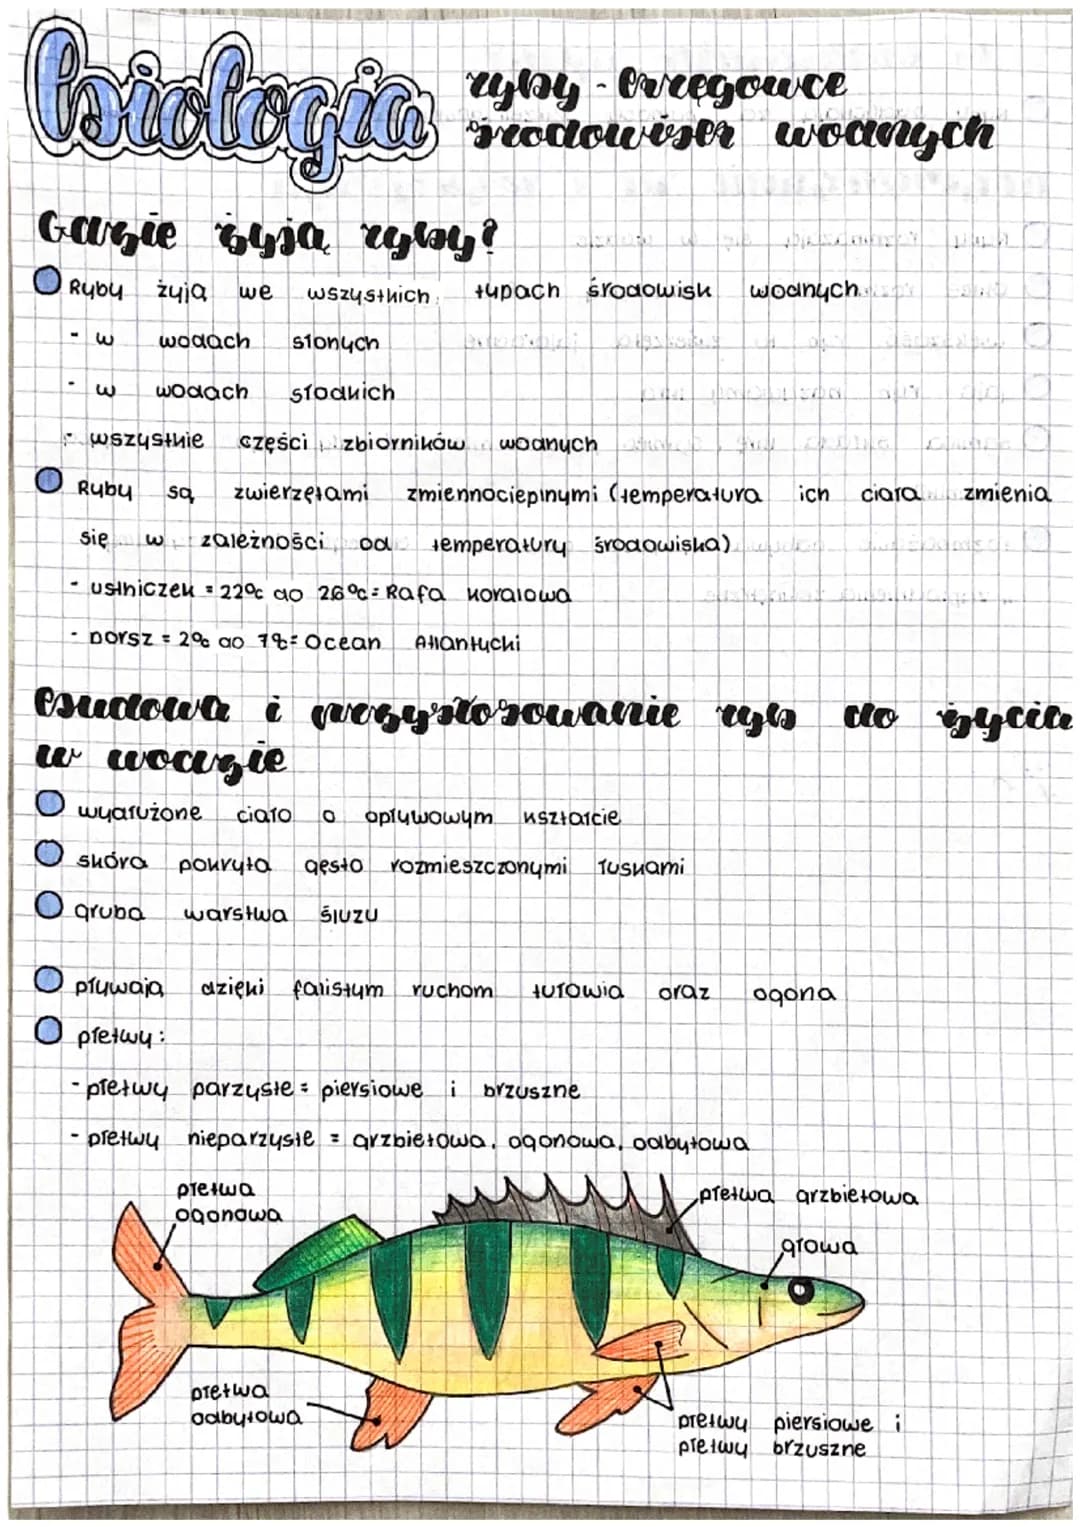 biologia
ryby - kręgowce
środowisk wodnych
Gdzie żyją ryby?
Ryby żyją we wszystkich typach środowisk wodnych
- w wodach słonych
- w wodach słodkich
- wszystkie części zbiorników wodnych
Ryby są zwierzętami zmiennocieplnymi (temperatura ich ciała zmienia
się w zależności od temperatury środowiska)
- ustniczek = 22°c do 26°c = Rafa koralowa
- Dorsz = 2°c do 7°c = Ocean Atlantycki
Budowa i przystosowanie ryb do życia
w wodzie
wydłużone ciało o opływowym kształcie
skóra pokryta gęsto rozmieszczonymi łuskami
gruba warstwa śluzu
pływają dzięki falistym ruchom tułowia oraz ogona
płetwy:
- płetwy parzyste = piersiowe i brzuszne
- płetwy nieparzyste = grzbietowa, ogonowa, odbytowa
płetwa
ogonowa
płetwa grzbietowa
głowa
płetwa
odbytowa
płetwy piersiowe i
płetwy brzuszne